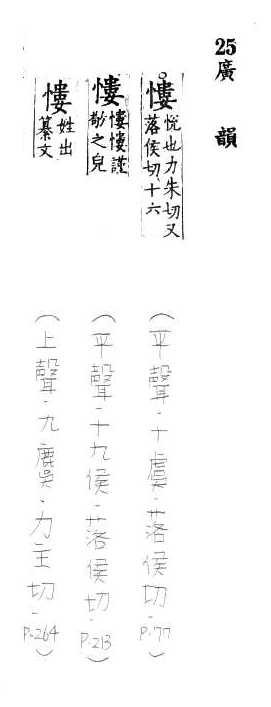 25廣韻
慺
悅也力朱切又
落侯切十六
(平聲.十虞.落侯切.P.77)
慺
慺慺謹
敬之皃
(平聲.十九侯.落侯切.P.213)
慺
姓出
纂文
(上聲.九麌.力主切.P.264)